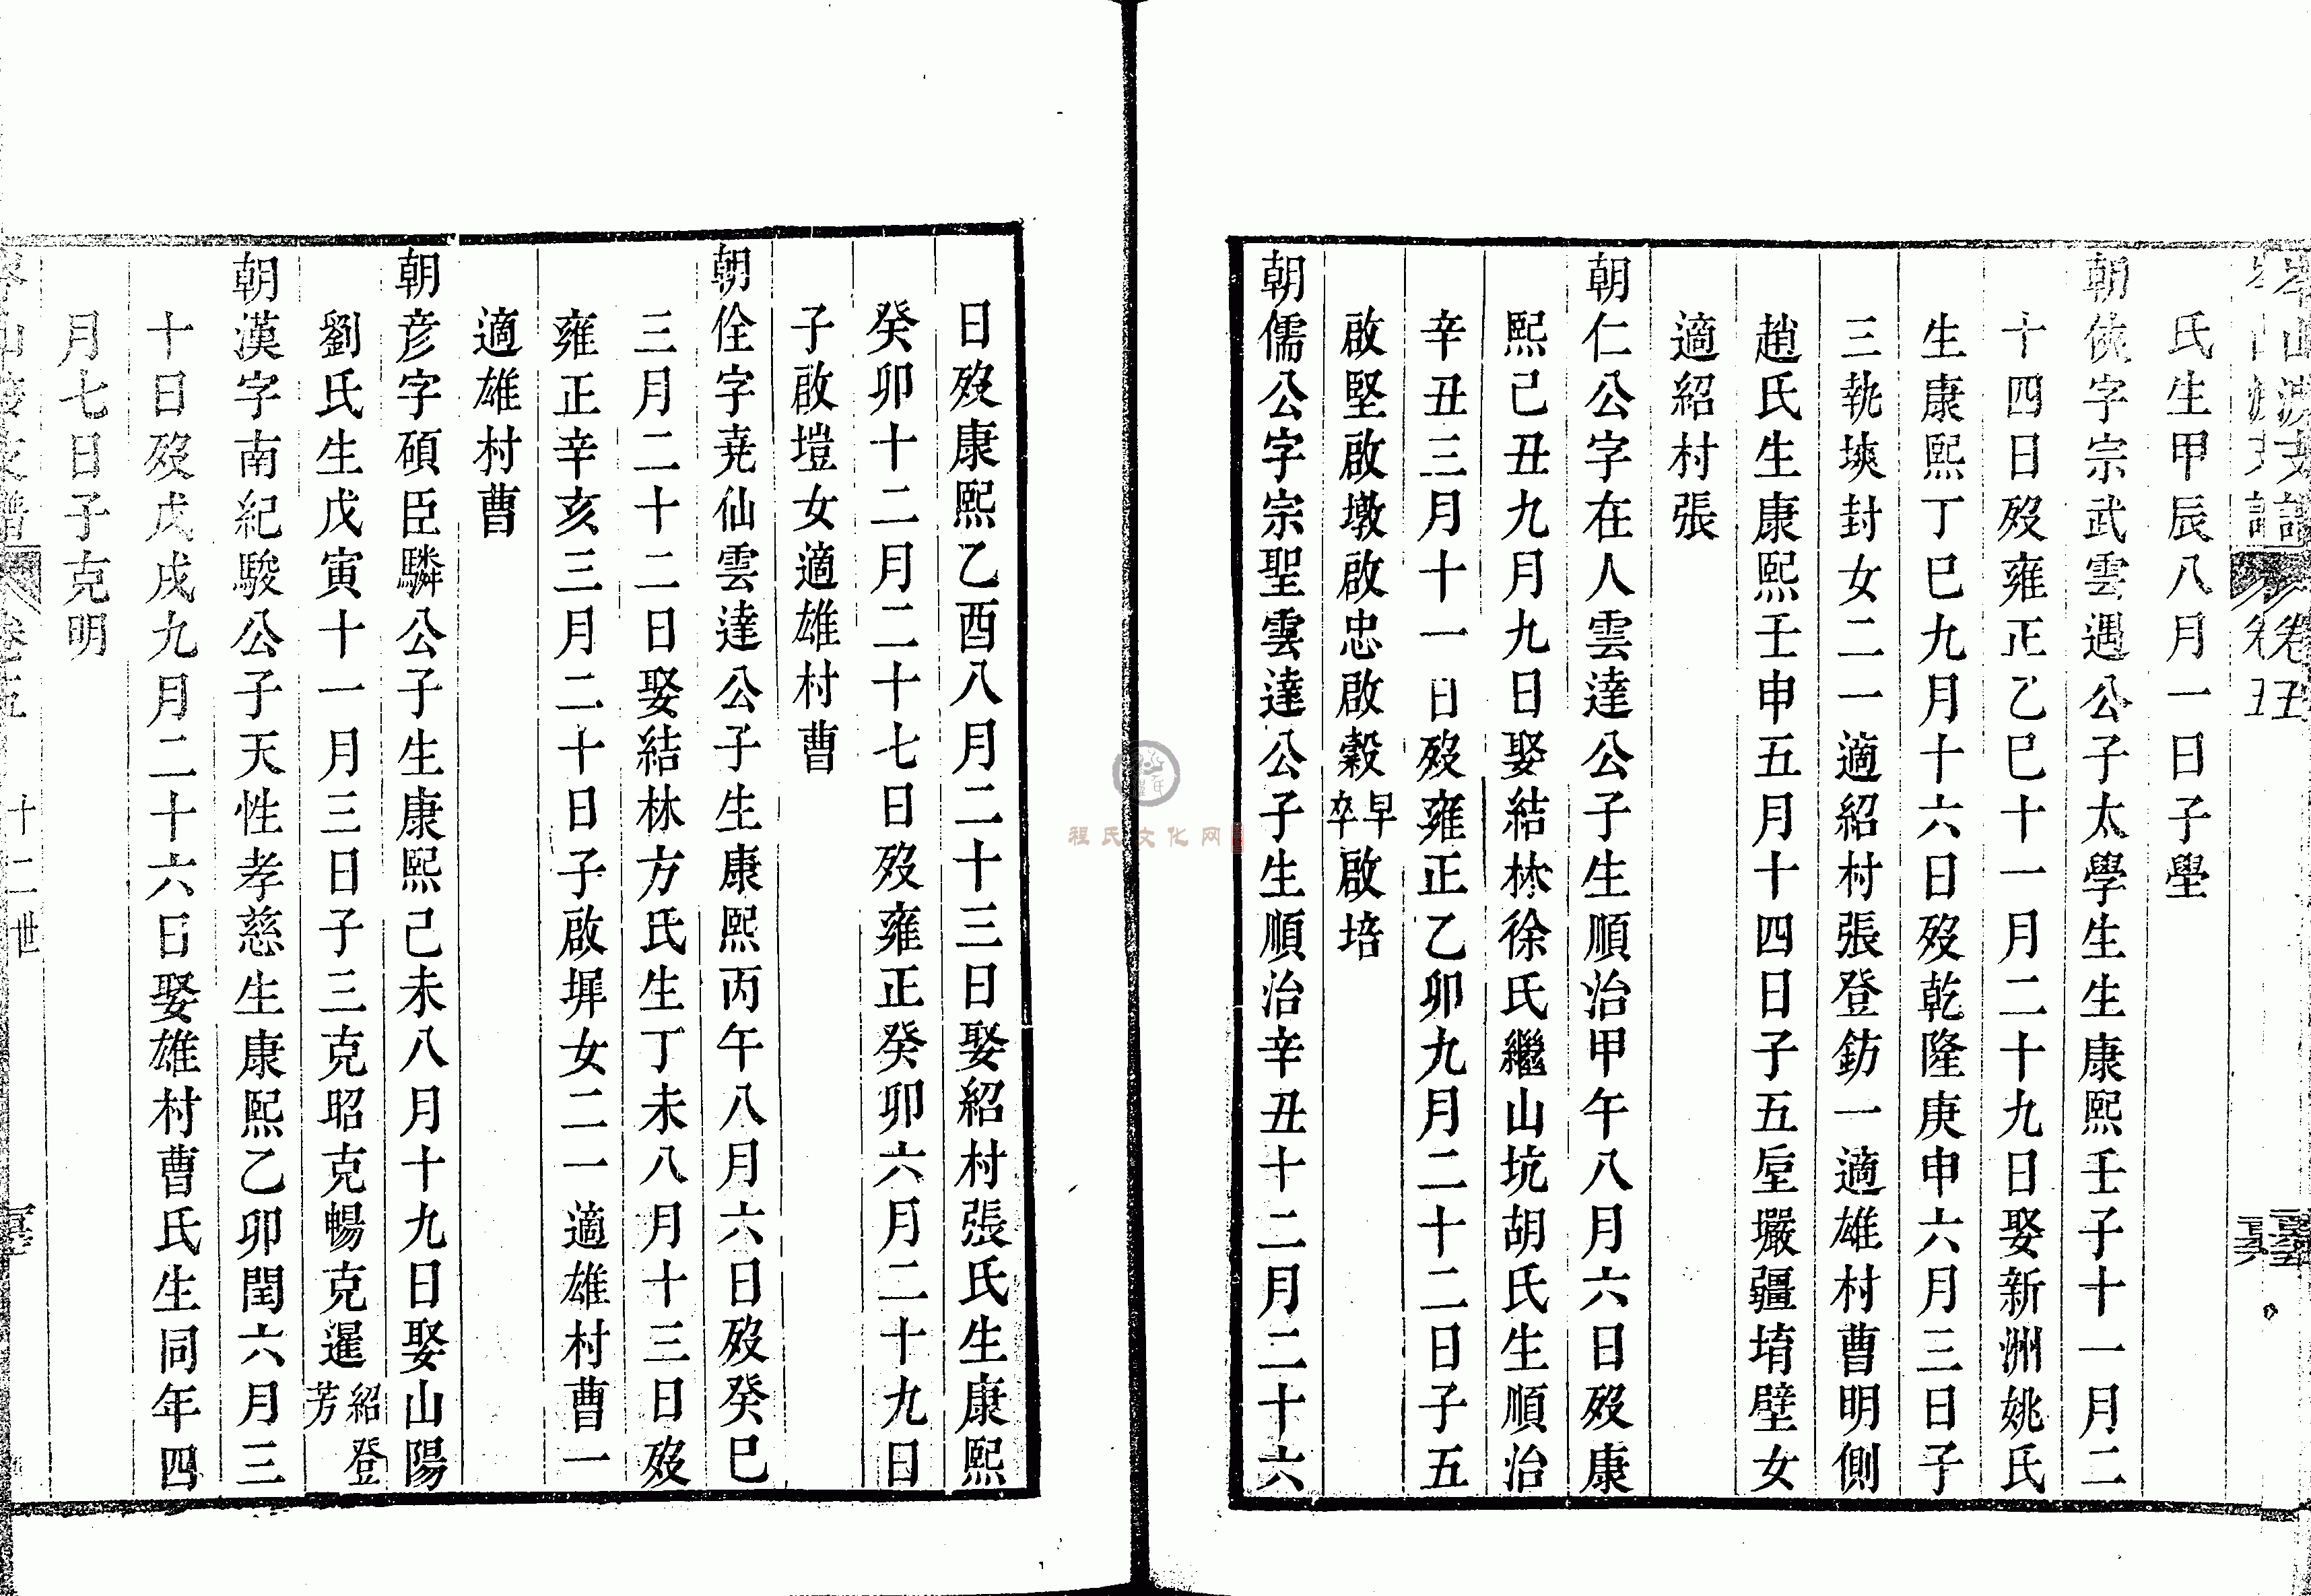 氏生甲辰八月一日子壆
朝依字宗武雲遇公子太學生生康熙壬子十一月二
十四日歿雍正乙巳十一月二十九日娶新洲姚氏
生康熙丁巳九月十六日歿乾隆庚申六月三日子
三執塽封女二一適紹村張登鈁一適雄村曹明側
趙氏生康熙壬申五月十四日子五垕巖疆堉壁女
適紹村張
朝仁公字在人雲達公子生順治甲午八月六日歿康
熙己丑九月九日娶結林徐氏繼山坑胡氏生順治
辛丑三月十一日歿雍正乙卯九月二十二日子五
啟堅啟墩啟忠啟穀早卒啟培
朝儒公字宗聖雲達公子生順治辛丑十二月二十六
日歿康熙乙酉八月二十三日娶紹村張氏生康熙
癸卯十二月二十七日歿雍正癸卯六月二十九日
子啟塏女適雄村曹
朝佺字堯仙雲達公子生康熙丙午八月六日歿癸巳
三月二十二日娶結林方氏生丁未八月十三日歿
雍正辛亥三月二十日子啟墀女二一適雄村曹一
適雄村曹
朝彥字碩臣驎公子生康熙己未八月十九日娶山陽
劉氏生戊寅十一月三日子三克昭克暢克暹紹登芳
朝漢字南紀駿公子天性孝慈生康熙乙卯閏六月三
十日歿戊戌九月二十六日娶雄村曹氏生同年四
月七日子克明
十二世
程氏文化网